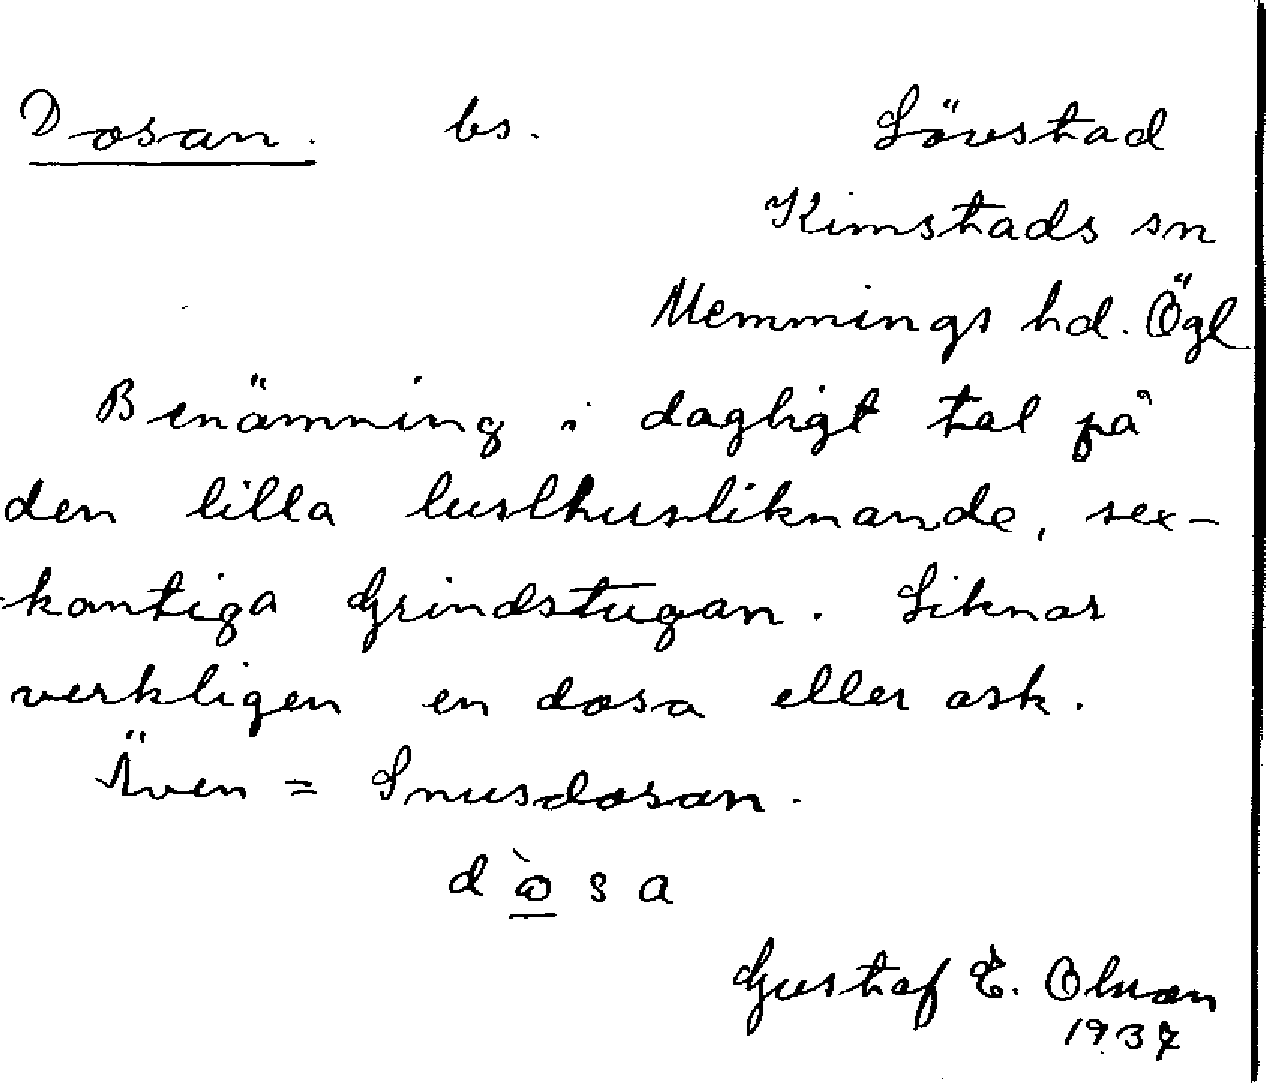 Dosan. bs. Lövstad
Kimstads sn
Memmings hd. Ögl
Benämning i dagligt tal på
den lilla lusthusliknande, sex-
-kantiga Grindstugan. Liknar
verkligen en dosa eller ask.
Även = Snusdosan.
d ò s a
Gustaf E. Olsson
1937